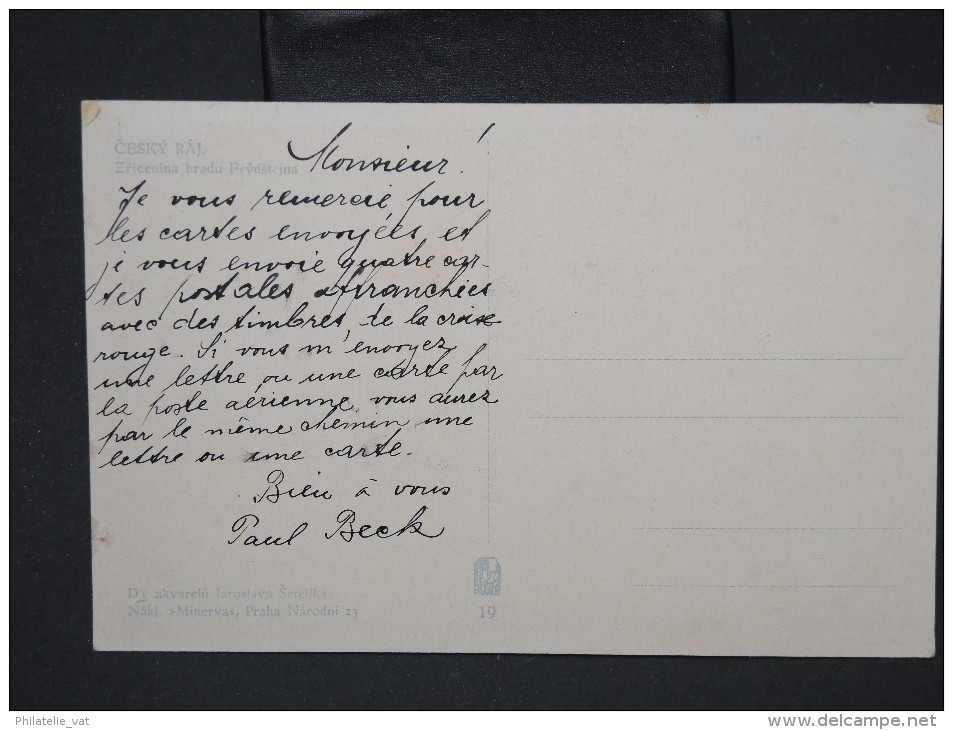 ČESKÝ RÁJ.
Zřícenina hradu Frýdštejna
Monsieur!
Je vous remercie pour
les cartes envoyées et
je vous envoie quatre car-
tes postales affranchies
avec des timbres, de la croix
rouge. Si vous m'envoyez
une lettre, ou une carte par
la poste aérienne, vous aurez
par le même chemin une
lettre ou une carte.
Bien à vous
Paul Beck
Dle akvarelů Jaroslava Šetelíka.
Nákl. »Minerva«, Praha Národní 23
19
Philatelie_vat
http://www.delcampe.net